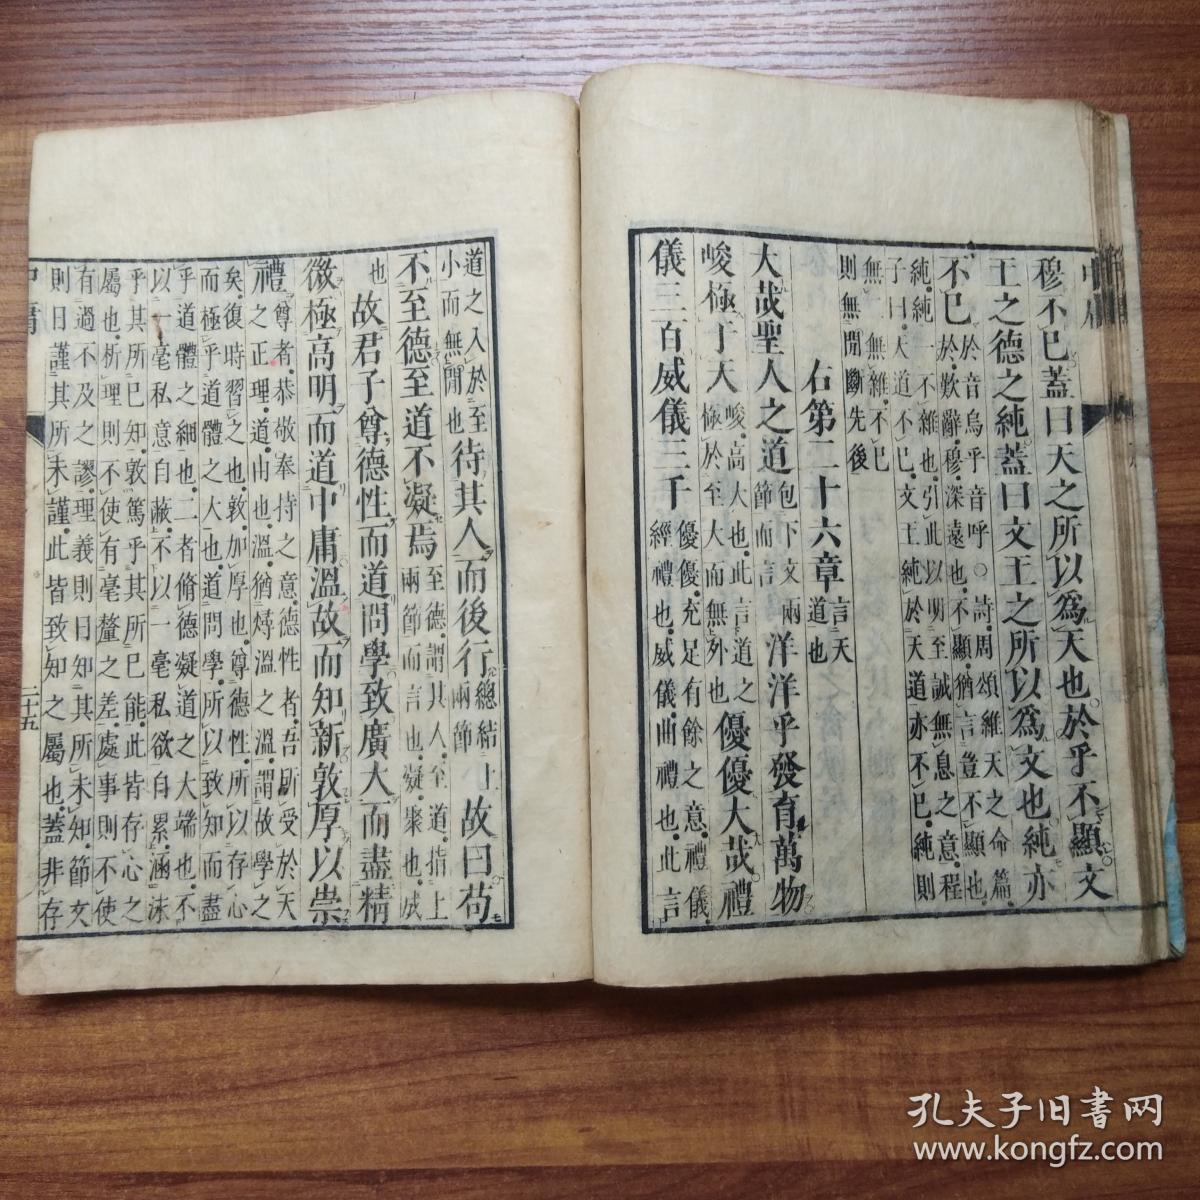 穆不已蓋曰天之所以爲天也於乎不顯文
王之德之純蓋曰文王之所以爲文也純亦
不已於音烏乎音呼○詩周頌維天之命篇
於歎辭穆深遠也不顯猶言豈不顯也
純純一不雜也引此以明至誠無息之意程
子曰天道不已文王純於天道亦不已純則
無二無雜不已
則無間斷先後
右第二十六章言天
道也
大哉聖人之道包下文兩
節而言洋洋乎發育萬物
峻極于天峻高大也此言道之
極於至大而無外也優優大哉禮
儀三百威儀三千優優充足有餘之意禮儀
經禮也威儀曲禮也此言
道之入於至
小而無間也待其人而後行總結上
兩節故曰苟
不至德至道不凝焉至德謂其人至道指上
兩節而言也凝聚也成
也故君子尊德性而道問學致廣大而盡精
微極高明而道中庸溫故而知新敦厚以崇
禮尊者恭敬奉持之意德性者吾所受於天
之正理道由也溫猶燖溫之溫謂故學之
矣復時習之也敦加厚也尊德性所以存心
而極乎道體之大也道問學所以致知而盡
乎道體之細也二者脩德凝道之大端也不
以一毫私意自蔽不以一毫私欲自累涵泳
乎其所已知敦篤乎其所已能此皆存心之
屬也析理則不使有毫釐之差處事則不使
有過不及之謬理義則日知其所未知節文
則日謹其所未謹此皆致知之屬也蓋非存
中庸
二十五
孔夫子旧书网
www.kongfz.com